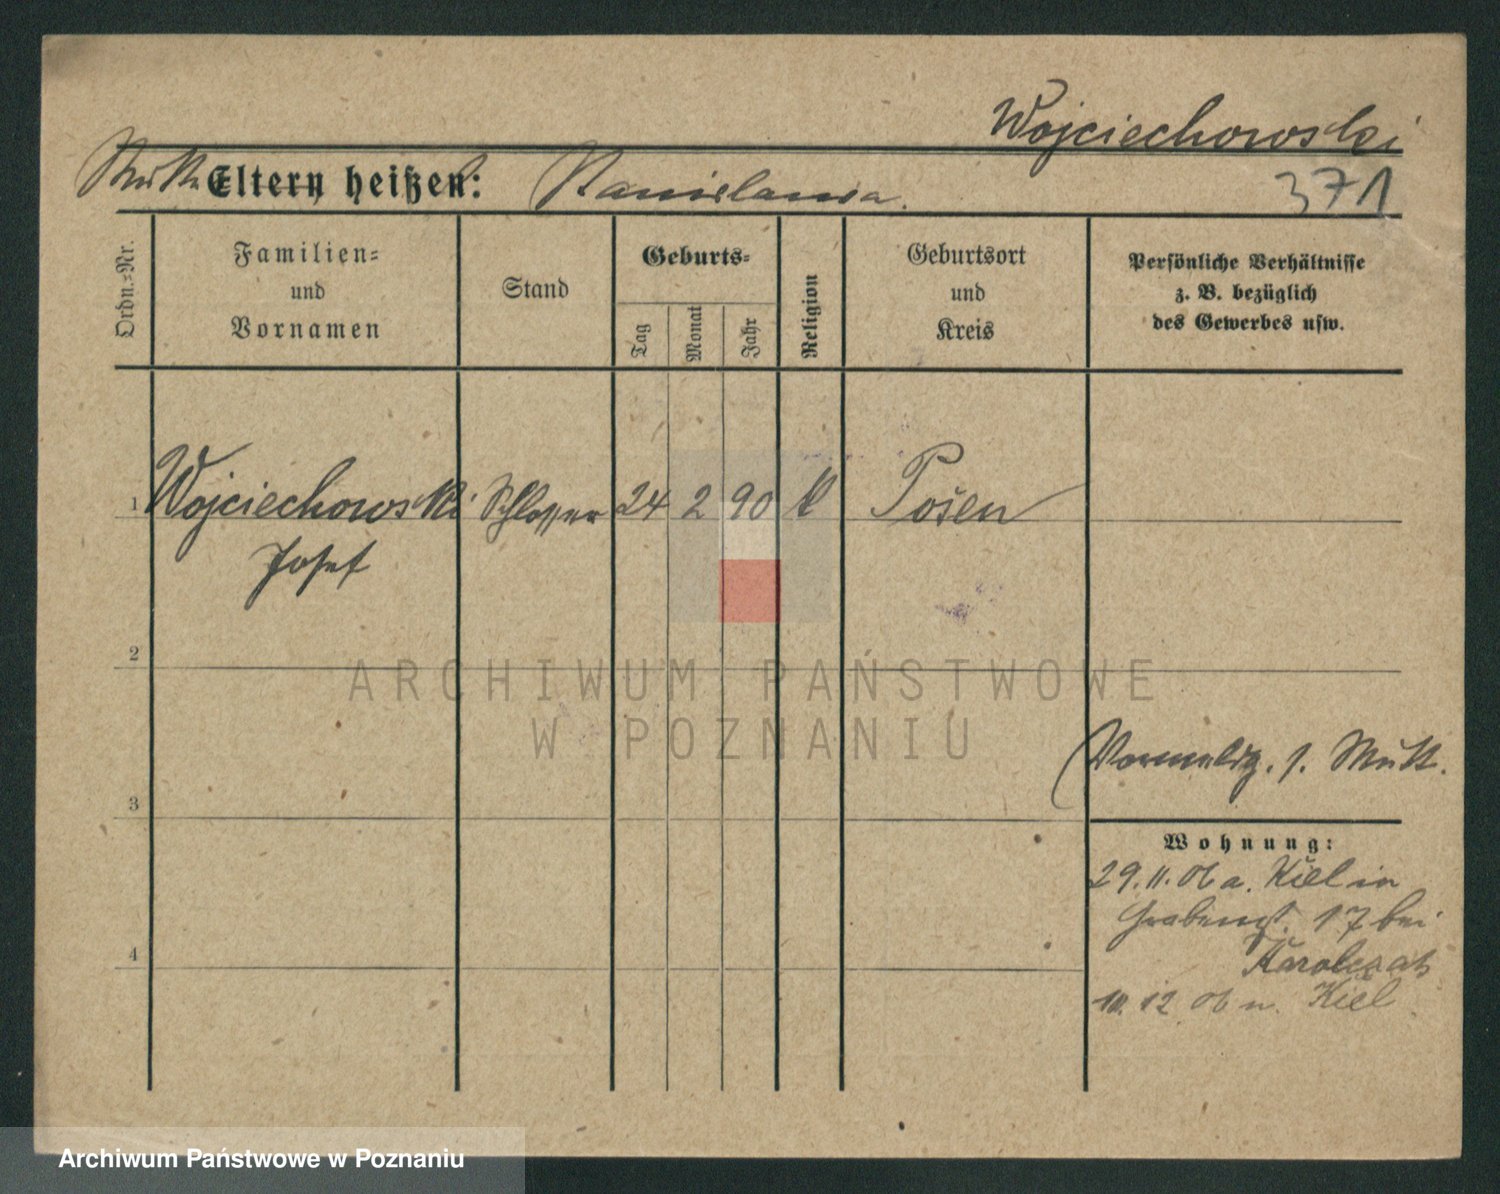 Wojciechowski
Mutter Eltern heißen: Stanislawa.
371
Ordn.=Nr.
Familien=
und
Vornamen
Stand
Geburts=
Tag
Monat
Jahr
Religion
Geburtsort
und
Kreis
Persönliche Verhältnisse
z. B. bezüglich
des Gewerbes usw.
1 Wojciechowski Schlosser 24 2 90 k Posen
Josef
2
ARCHIWUM PAŃSTWOWE
W POZNANIU
s. Mutt.
3
Wohnung:
29.11.06 a. Kiel in
Grabenst. 17 bei
4
12 06 n. Kiel
Archiwum Państwowe w Poznaniu